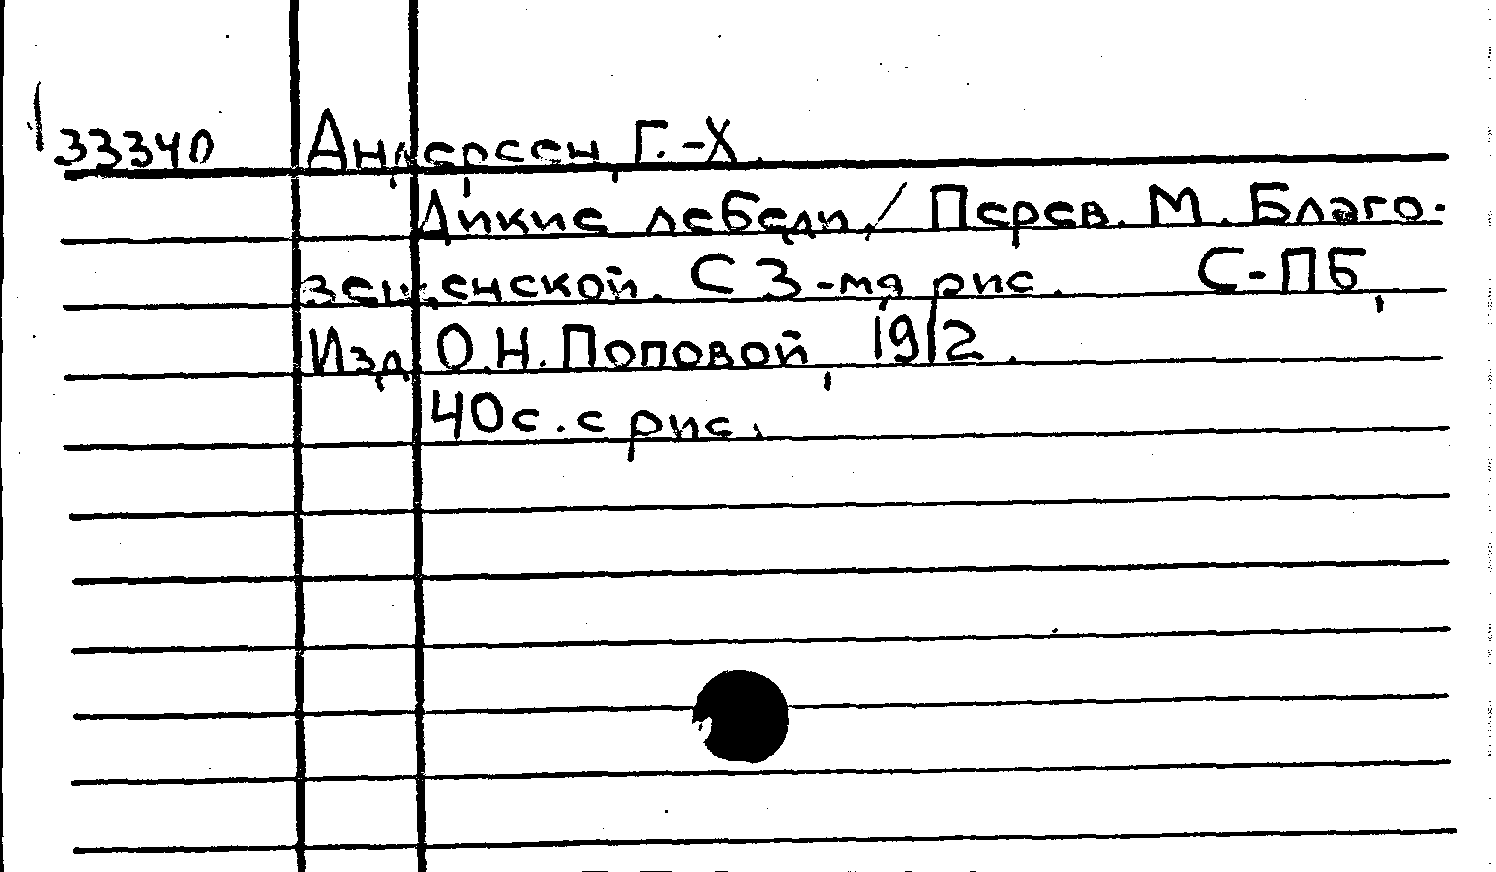 33340 Андерсен, Г.-Х.
Дикие лебеди / Перев. М. Благо-
вещенской. С 3-мя рис. С-ПБ,
Изд. О.Н. Поповой, 1912.
40с. с рис.